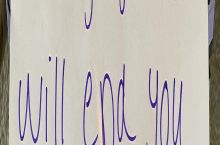 will end you